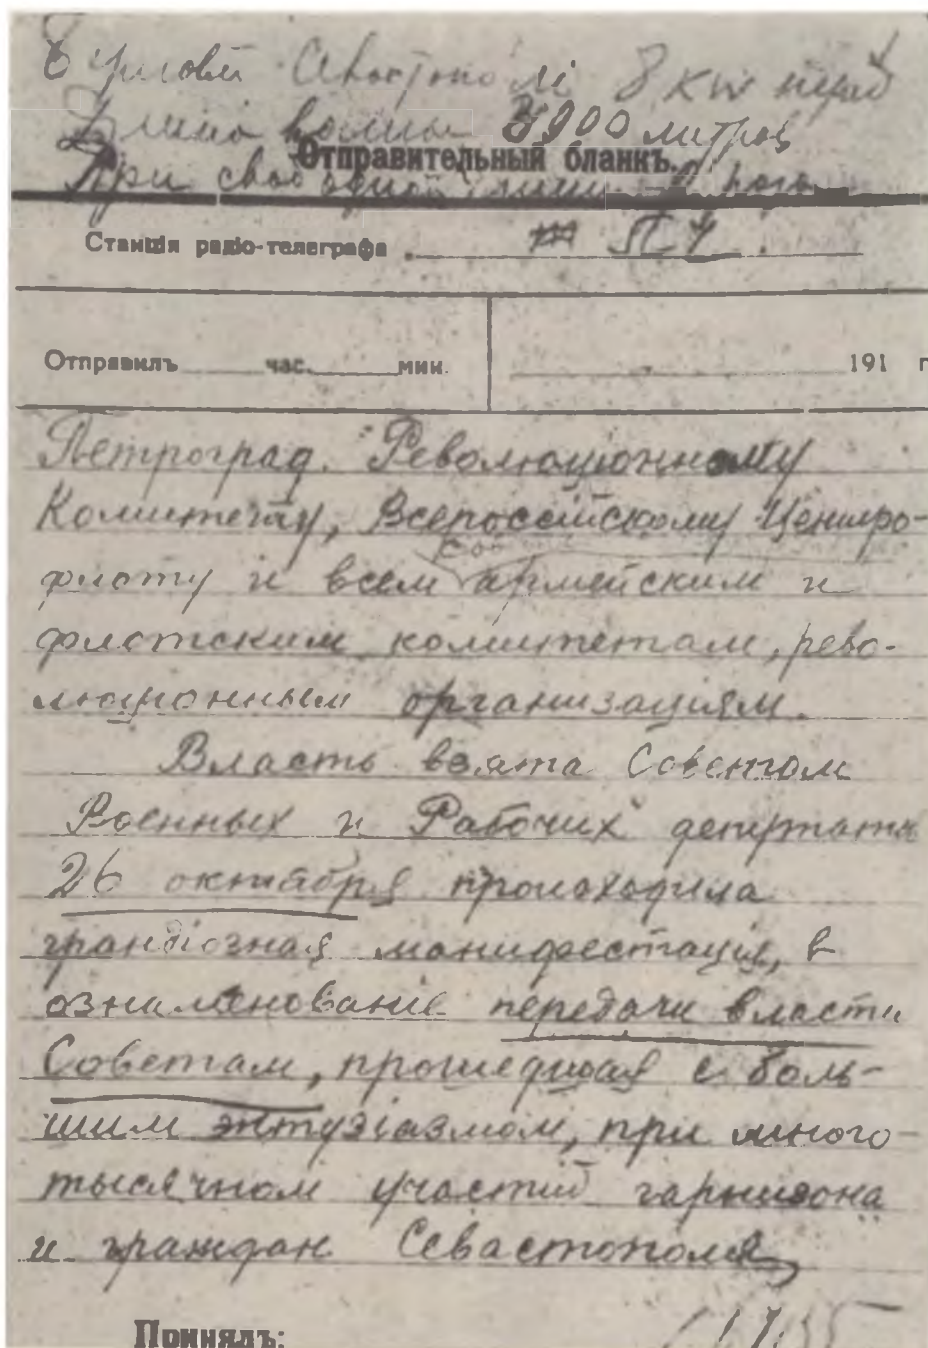 Севастополь 8 kw
Длина волны 3900 метров
Отправительный бланкъ.
При свободной
Станція радіо-телеграфа
Отправилъ час. мин. 191 г
Петроград. Революционному
Комитету, Всероссийскому Центро-
флоту и всем армейским и
флотским комитетам, рево-
люционным организаціям.
Власть взята Советом
Военных и Рабочих депутатов
26 октября происходила
грандіозная манифестація, в
ознаменованіе передачи власти
Советам, прошедшая с боль-
шим энтузіазмом, при много-
тысячном участии гарнизона
и граждан Севастополя,
Принялъ: